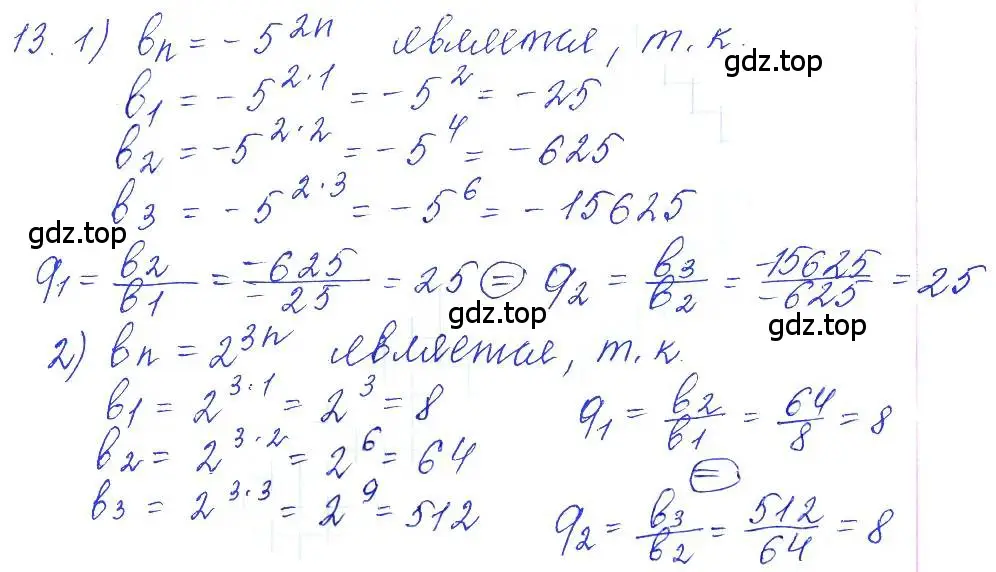 13. 1) bₙ = - 5²ⁿ является, т. к.
gdz.top
b₁ = - 5^{2·1} = - 5² = - 25
b₂ = - 5^{2·2} = - 5⁴ = - 625
b₃ = - 5^{2·3} = - 5⁶ = - 15625
gdz.top
q₁ = b₂/b₁ = -625/-25 = 25 = q₂ = b₃/b₂ = -15625/-625 = 25
gdz.top gdz.top
2) bₙ = 2³ⁿ является, т. к.
b₁ = 2^{3·1} = 2³ = 8 q₁ = b₂/b₁ = 64/8 = 8
b₂ = 2^{3·2} = 2⁶ = 64 =
b₃ = 2^{3·3} = 2⁹ = 512 q₂ = b₃/b₂ = 512/64 = 8